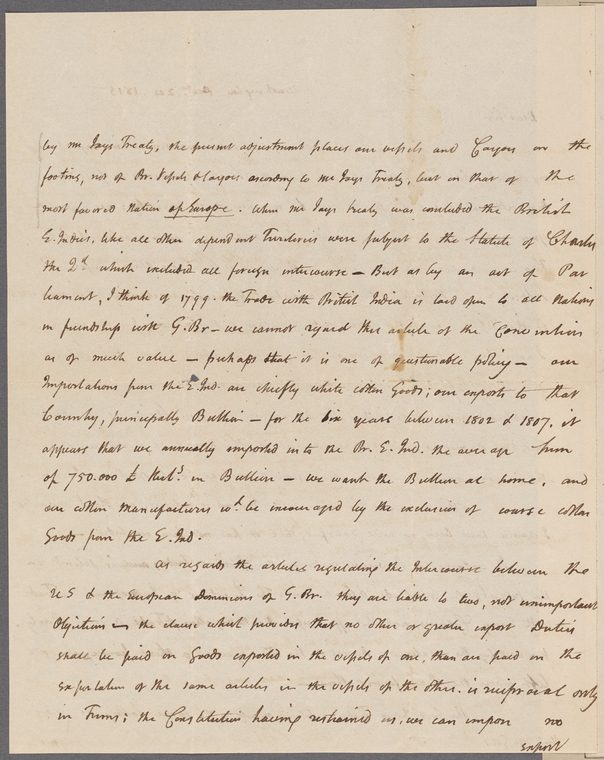 by Mr Jays Treaty, the present adjustment places our vessels and Cargoes on the
footing, not of Br. Vessels & Cargoes according to Mr Jays Treaty, but on that of the
most favored Nation of Europe. When Mr Jays treaty was concluded the British
E. Indies, like all other dependent Territories were subject to the Statute of Charles
the 2d. which excluded all foreign intercourse — But as by an act of Par
liament, I think of 1799. the Trade with British India is laid open to all Nations
in friendship with G. Br — we cannot regard this article of the Convention
as of much value — perhaps that it is one of questionable policy — our
Importations from the E Ind. are chiefly white cotton Goods; our exports to that
Country, principally Bullion — for the six years between 1802 & 1807, it
appears that we annually imported into the Br. E. Ind. the average Sum
of 750.000 £ Sterlg. in Bullion — we want the Bullion at home, and
our cotton manufactures wd. be incouraged by the exclusion of coarse cotton
Goods from the E. Ind.
As regards the articles regulating the Intercourse between the
U S & the European Dominions of G. Br. they are liable to two, not unimportant
Objections — the clause which provides that no other or greater export Duties
shall be paid on Goods exported in the vessels of one, than are paid on the
exportation of the same articles in the vessels of the other. is reciprocal only
in Terms; the Constitution having restrained us, we can impose no
export